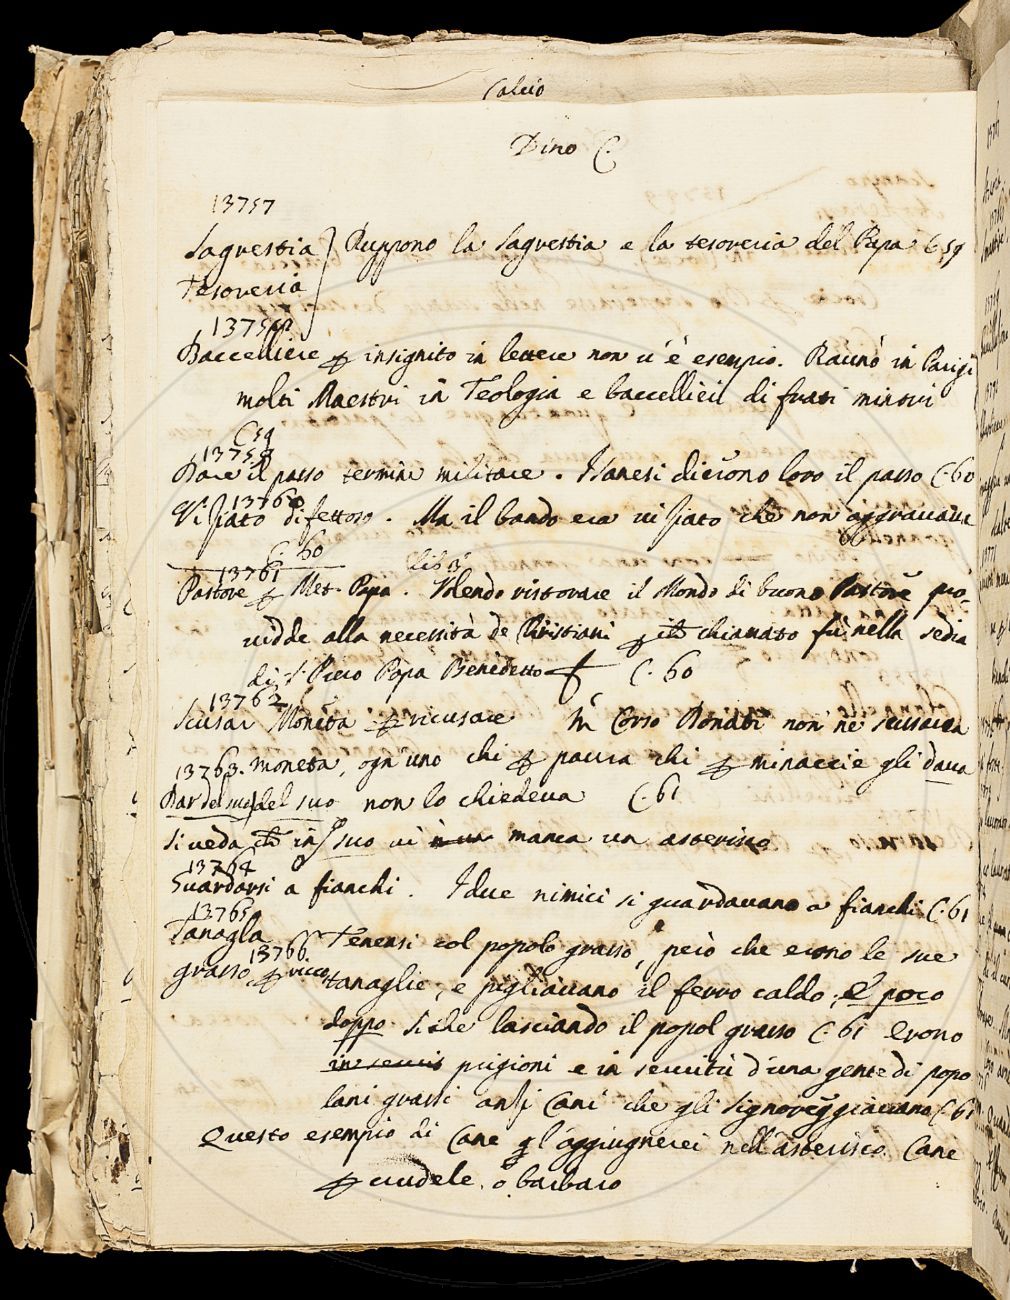 Calcio
Dino C.
13757
Sagrestia } Ruppono la Sagrestia e la tesoreria del Papa C 59
Tesoreria
13758
Baccelliere p insignito in lettere non v'è esempio. Raunò in Parigi
molti Maestri in Teologia e baccellieri di frati minori
C 59
13759
Dare il passo termine militare. Sanesi dierono loro il passo C. 60
13760
Viziato difettoso. Ma il bando era viziato che non aggravava
C. 60
13761
Pastore p Met. Papa. Volendo ristorare il Mondo di buono Pastore pro
vidde alla necessità de Christiani p che chiamato fù nella sedia
di S. Piero Papa Benedetto C. 60
13762
Scusar Moneta p ricusare M. Corso Donati non ne scusava
13763. moneta, ogn'uno chi p paura chi p minaccie gli dava
Dar del suo del suo non lo chiedeva C. 61
si veda che in suo vi manca un asterisco
13764
Guardarsi a fianchi. I due nimici si guardavano a fianchi C. 61
13765
Tanagla Tenensi col popolo grasso, però che erono le sue
13766
grasso p ricco tanaglie, e pigliavano il ferro caldo, E poco
doppo. Siche lasciando il popol grasso C. 61 Erono
in servis prigioni e in servitù d'una gente di popo
lani grassi anzi Cani che gli signoreggiavano C. 61
Questo esempio di Cane gl'aggiugnerei nell'asterisco Cane
p crudele, o barbaro